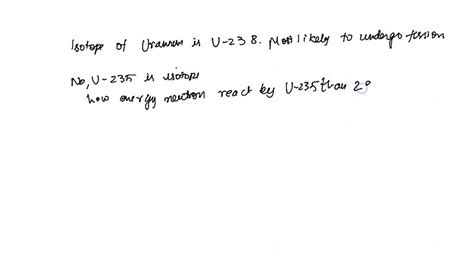 Isotope of Uranium is U-238. Most likely to undergo fission
No, U-235 is isotope
low energy neutron react by U-235 than 23